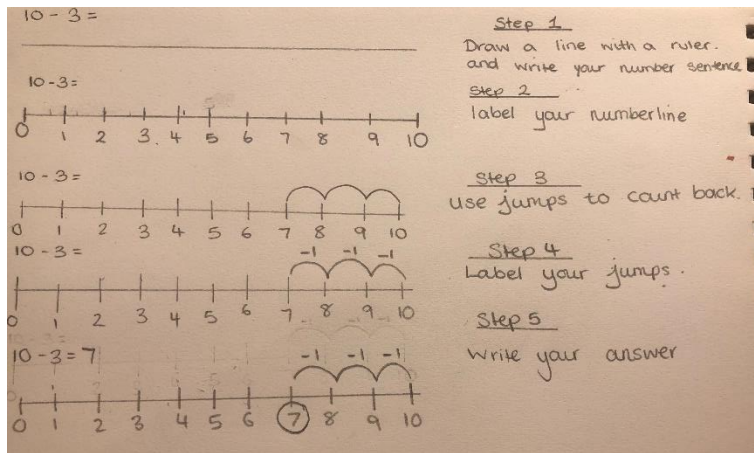 10 - 3 =
Step 1
Draw a line with a ruler.
and write your number sentence
10 - 3 =
0 1 2 3 4 5 6 7 8 9 10
Step 2
label your numberline
10 - 3 =
0 1 2 3 4 5 6 7 8 9 10
Step 3
use jumps to count back.
10 - 3 =
-1 -1 -1
0 1 2 3 4 5 6 7 8 9 10
Step 4
Label your jumps.
10 - 3 = 7
-1 -1 -1
0 1 2 3 4 5 6 7 8 9 10
Step 5
Write your answer